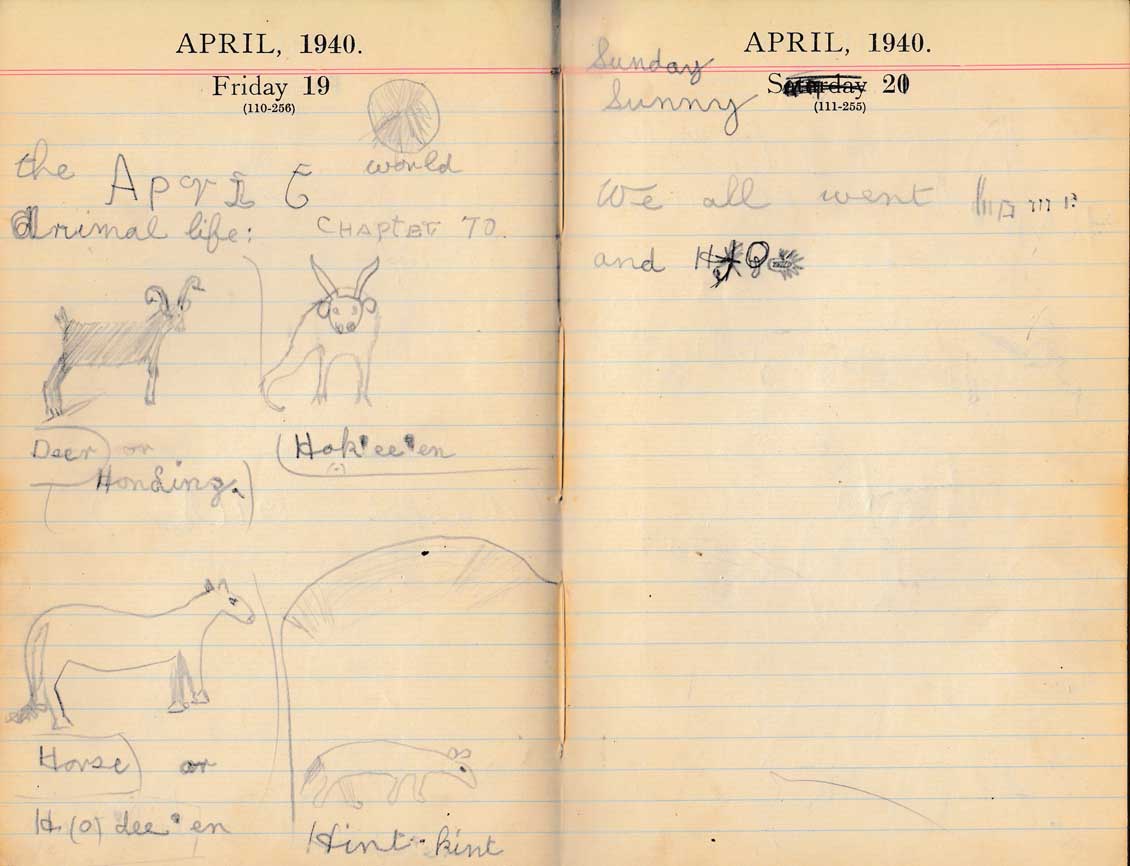 APRIL, 1940.
Friday 19
(110-256)
world
the
Animal life: CHAPTER 10.
Deer) or
HonDing.)
(Hok'ee'en
Horse) or
H(o) dee'en
Hint-kint
APRIL, 1940.
Sunday
Saturday 20
(111-255)
Sunny
We all went
and